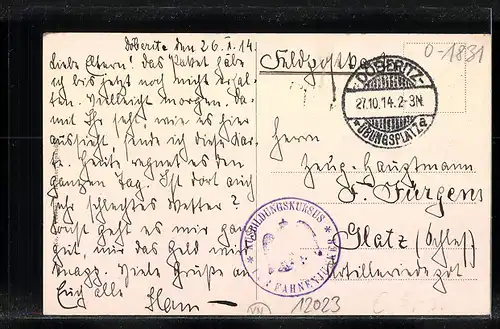 Döberitz den 26.X.14.
Liebe Eltern! Das Paket habe
ich bis jetzt noch nicht erhal-
ten. Vielleicht morgen. Da-
mit Ihr seht, wie es hier
aussieht, sende ich diese Kar-
te. Heute regnet es den
ganzen Tag. Ist dort auch
sehr schlechtes Wetter?
Sonst geht es mir ganz
gut, nur das Geld wird
knapp. Viele Grüße an
Euch alle
Feldpostkarte
0-1831
DÖBERITZ
27.10.14.2-3N.
* ÜBUNGSPLATZ a
Herrn
Zeug-Hauptmann
F. Jürgens
Glatz (Schles)
Artilleriedepot
* AUSBILDUNGSKURSUS *
FAHNENJUNKER
12023